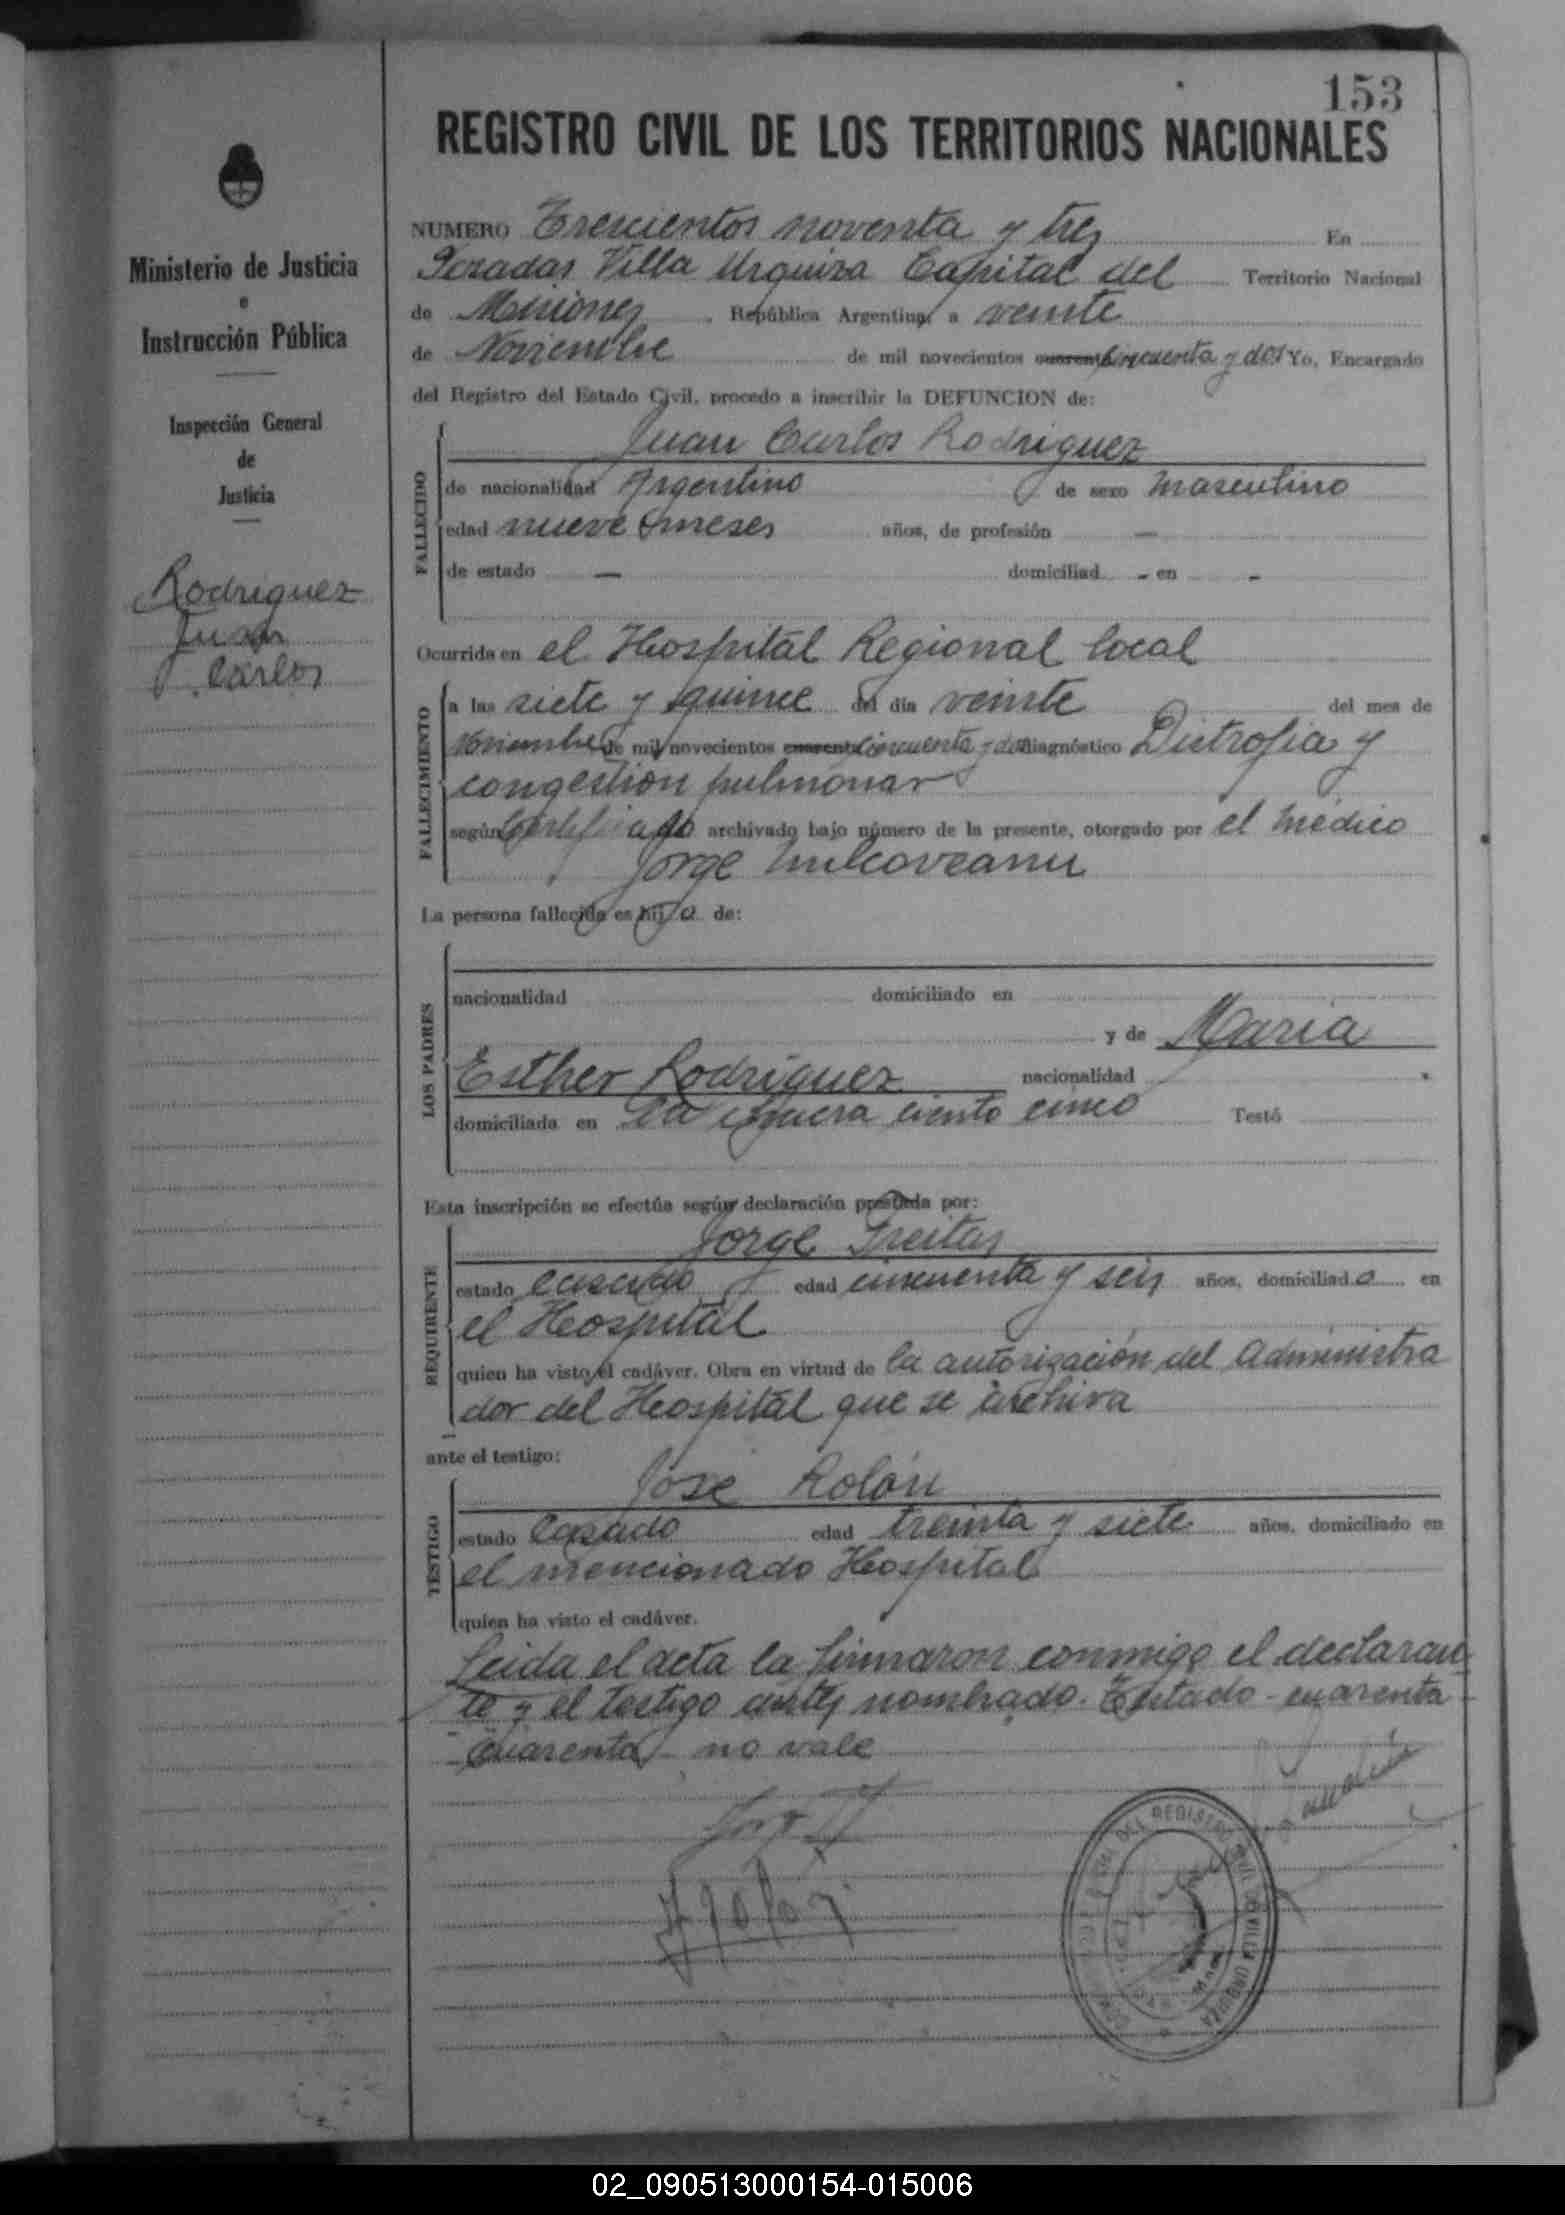 153
REGISTRO CIVIL DE LOS TERRITORIOS NACIONALES
Ministerio de Justicia
e
Instrucción Pública
Inspección General
de
Justicia
Rodriguez
Juan
Carlos
NUMERO Trescientos noventa y tres En
Posadas Villa Urquiza Capital del Territorio Nacional
de Misiones, República Argentina, a veinte
de Noviembre de mil novecientos cuarenta cincuenta y dos Yo, Encargado
del Registro del Estado Civil, procedo a inscribir la DEFUNCION de:
Juan Carlos Rodriguez
FALLECIDO
de nacionalidad Argentino de sexo masculino
edad nueve meses años, de profesión —
de estado — domiciliad - en -
Ocurrida en el Hospital Regional local
FALLECIMIENTO
a las siete y quince del día veinte del mes de
Noviembre de mil novecientos cuarenta cincuenta y dos diagnóstico Distrofia y
congestion pulmonar
según Certificado archivado bajo número de la presente, otorgado por el médico
Jorge
La persona fallecida es hijo de:
LOS PADRES
nacionalidad domiciliado en
y de Maria
Esther Rodriguez nacionalidad
domiciliada en La ciento cinco Testó
Esta inscripción se efectúa según declaración prestada por:
Jorge Freitas
REQUIRENTE
estado casado edad cincuenta y seis años, domiciliado en
el Hospital
quien ha visto el cadáver. Obra en virtud de la autorización del Administra
dor del Hospital que se archiva
ante el testigo:
José Rolón
TESTIGO
estado Casado edad treinta y siete años, domiciliado en
el mencionado Hospital
quien ha visto el cadáver.
Leida el acta la firmaron conmigo el declaran-
te y el testigo antes nombrado. Testado - cuarenta -
cuarenta - no vale
02_090513000154-015006